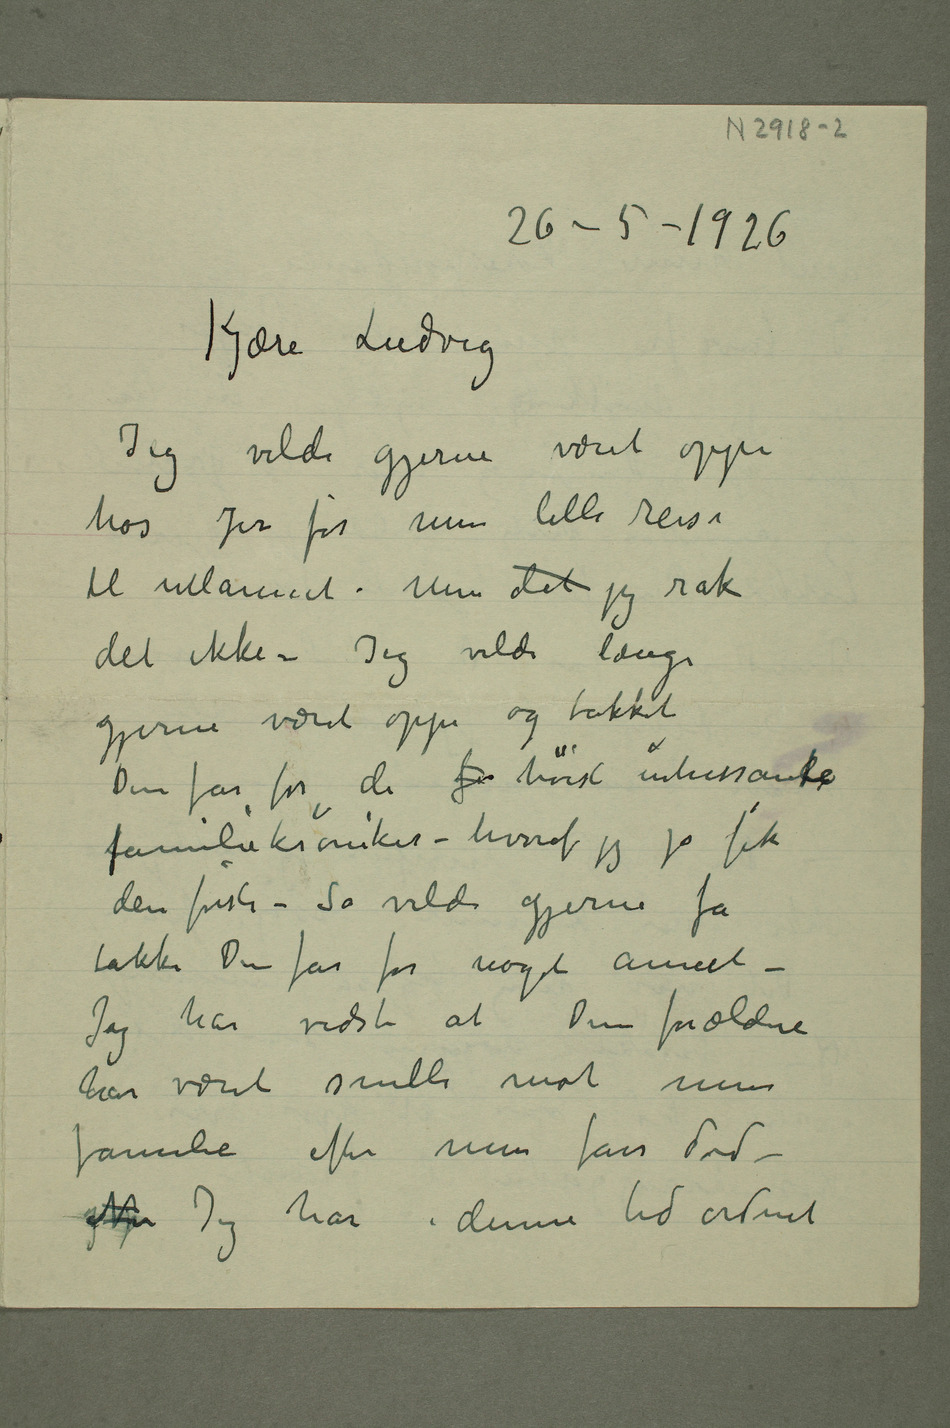 N 2918-2
26 – 5 – 1926
Kjære Ludvig
Jeg vilde gjerne været oppe
hos Jer før min lille reise
til utlannet. Men det jeg rak
det ikke – Jeg vilde længe
gjerne været oppe og takket
Din far for de høist intressante
familiekrøniker – hvoraf jeg jo fik
den første – Så vilde gjerne få
takke Din far for noget annet –
Jeg har vidst at Dine forældre
har været snille mot min
familie efter min fars død –
Jeg har i denne tid ordnet